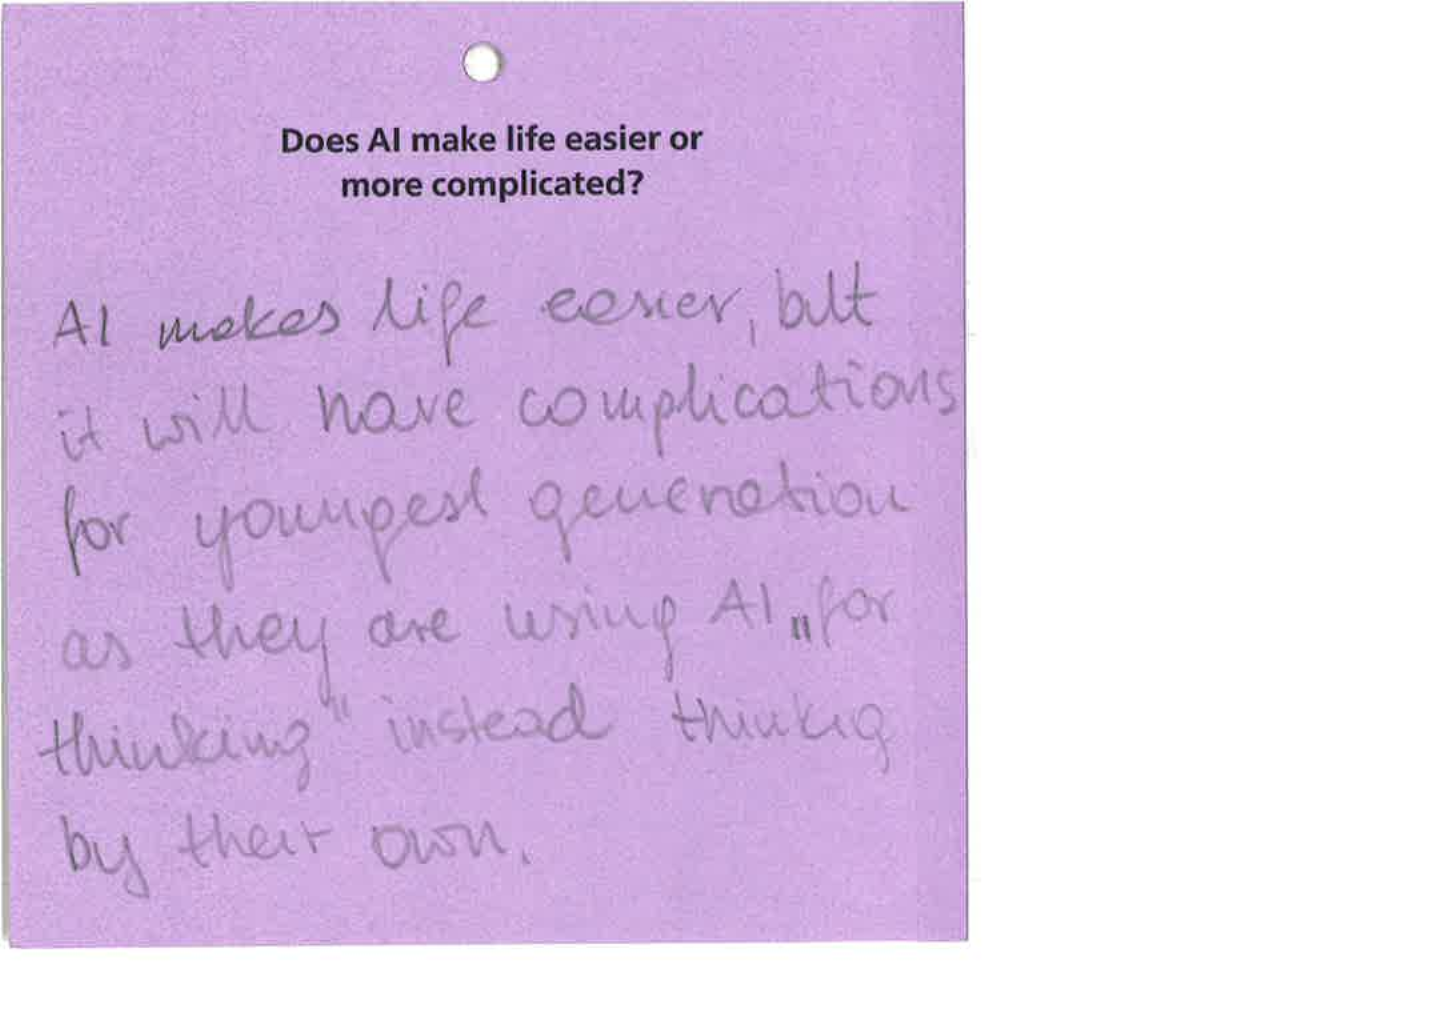 Does AI make life easier or
more complicated?
AI makes life easier, but
it will have complications
for youngest generation
as they are using AI „for
thinking" instead thinkig
by their own.